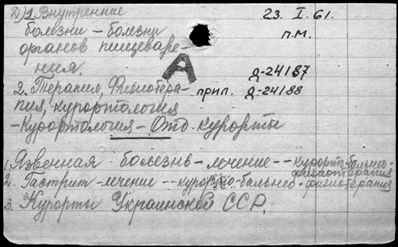 Д/1. Внутренние 23. I. 61.
болезни - болезни п.м.
органов пищеваре-
ния.
А
д-24187
2. Терапия, Физиотера- прил. д-24188
пия, курортология
- Курортология - Отд. курорты
1. Язвенная болезнь - лечение -- курорто-бальнео-
физиотерапия
2. Гастрит - лечение -- курорто-бальнео-физиотерапия
3. Курорты Украинской ССР.